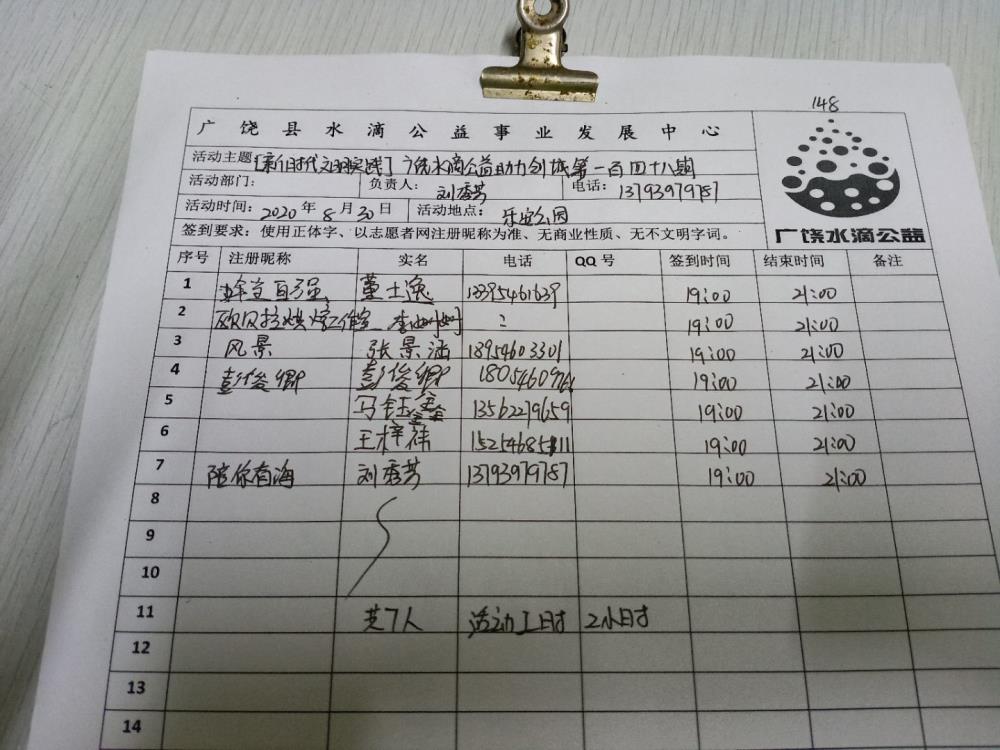 148
广饶县水滴公益事业发展中心
活动主题：[新时代文明实践]广饶水滴公益助力创城第一百四十八期
活动部门： 负责人：刘秀芳 电话：13793979787
活动时间：2020年8月30日 活动地点：乐安公园
签到要求：使用正体字、以志愿者网注册昵称为准、无商业性质、无不文明字词。
广饶水滴公益
序号 注册昵称 实名 电话 QQ号 签到时间 结束时间 备注
1 自强 董士逸 13395461639 19:00 21:00
2 欧贝拉烘焙工作室 李 : 19:00 21:00
3 风景 张景涵 18954603301 19:00 21:00
4 彭俊卿 彭俊卿 18054609 19:00 21:00
5 马钰鑫 13562279659 19:00 21:00
6 王梓祎 19:00 21:00
7 陪你看海 刘秀芳 13793979787 19:00 21:00
8
9
10
11 共7人 活动工时 2小时
12
13
14